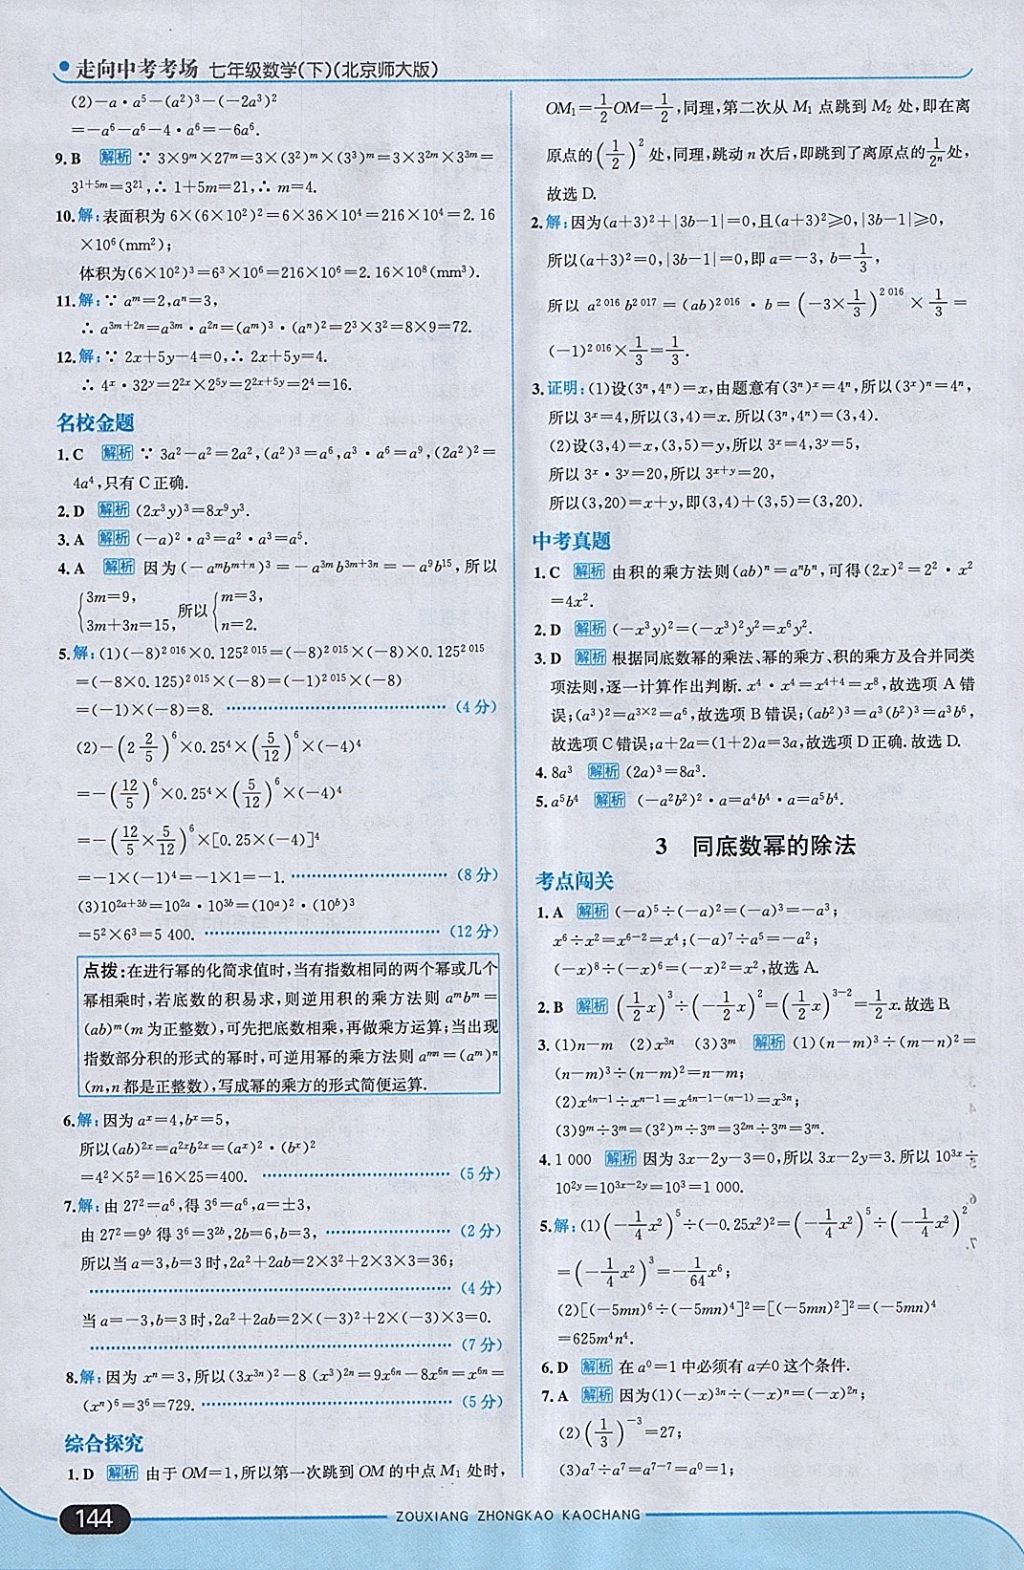 走向中考考场 七年级数学(下)(北京师大版)
(2)-a·a⁵-(a²)³-(-2a³)²
=-a⁶-a⁶-4·a⁶=-6a⁶.
9.B 解析 ∵ 3×9ᵐ×27ᵐ=3×(3²)ᵐ×(3³)ᵐ=3×3²ᵐ×3³ᵐ=
3¹⁺⁵ᵐ=3²¹,∴ 1+5m=21,∴ m=4.
10.解:表面积为 6×(6×10²)²=6×36×10⁴=216×10⁴=2.16
×10⁶(mm²);
体积为(6×10²)³=6³×10⁶=216×10⁶=2.16×10⁸(mm³).
11.解:∵ aᵐ=2,aⁿ=3,
∴ a³ᵐ⁺²ⁿ=a³ᵐ·a²ⁿ=(aᵐ)³·(aⁿ)²=2³×3²=8×9=72.
12.解:∵ 2x+5y-4=0,∴ 2x+5y=4.
∴ 4ˣ·32ʸ=2²ˣ×2⁵ʸ=2²ˣ⁺⁵ʸ=2⁴=16.
名校金题
1.C 解析 ∵ 3a²-a²=2a²,(a²)³=a⁶,a³·a⁶=a⁹,(2a²)²=
4a⁴,只有 C 正确.
2.D 解析 (2x³y)³=8x⁹y³.
3.A 解析 (-a)²·a³=a²·a³=a⁵.
4.A 解析 因为(-aᵐbᵐ⁺ⁿ)³=-a³ᵐb³ᵐ⁺³ⁿ=-a⁹b¹⁵,所以
{3m=9, 3m+3n=15, 所以{m=3, n=2.
5.解:(1)(-8)²⁰¹⁶×0.125²⁰¹⁵=(-8)²⁰¹⁵×(-8)×0.125²⁰¹⁵
=(-8×0.125)²⁰¹⁵×(-8)=(-1)²⁰¹⁵×(-8)
=(-1)×(-8)=8. (4分)
(2)-(2 2/5)⁶×0.25⁴×(5/12)⁶×(-4)⁴
=-(12/5)⁶×0.25⁴×(5/12)⁶×(-4)⁴
=-(12/5×5/12)⁶×[0.25×(-4)]⁴
=-1×(-1)⁴=-1×1=-1. (8分)
(3)10²ᵃ⁺³ᵇ=10²ᵃ·10³ᵇ=(10ᵃ)²·(10ᵇ)³
=5²×6³=5 400. (12分)
点拨:在进行幂的化简求值时,当有指数相同的两个幂或几个
幂相乘时,若底数的积易求,则逆用积的乘方法则 aᵐbᵐ=
(ab)ᵐ(m 为正整数),可先把底数相乘,再做乘方运算;当出现
指数部分积的形式的幂时,可逆用幂的乘方法则 aᵐⁿ=(aᵐ)ⁿ
(m,n都是正整数),写成幂的乘方的形式简便运算.
6.解:因为 aˣ=4,bˣ=5,
所以(ab)²ˣ=a²ˣb²ˣ=(aˣ)²·(bˣ)²
=4²×5²=16×25=400. (5分)
7.解:由 27²=a⁶,得 3⁶=a⁶,a=±3,
由 27²=9ᵇ 得 3⁶=3²ᵇ,2b=6,b=3, (2分)
所以当 a=3,b=3 时,2a²+2ab=2×3²+2×3×3=36;
(4分)
当 a=-3,b=3 时,2a²+2ab=2×(-3)²+2×(-3)×3=0.
(7分)
8.解:因为 xⁿ=3,所以(3x³ⁿ)²-8(x³)²ⁿ=9x⁶ⁿ-8x⁶ⁿ=x⁶ⁿ=
(xⁿ)⁶=3⁶=729. (5分)
综合探究
1.D 解析 由于 OM=1,所以第一次跳到 OM 的中点 M₁ 处时,
OM₁=1/2OM=1/2,同理,第二次从 M₁ 点跳到 M₂ 处,即在离
原点的(1/2)²处,同理,跳动 n 次后,即跳到了离原点的1/2ⁿ处,
故选 D.
2.解:因为(a+3)²+|3b-1|=0,且(a+3)²≥0,|3b-1|≥0,
所以(a+3)²=0,|3b-1|=0,即 a=-3, b=1/3,
所以 a²⁰¹⁶b²⁰¹⁷=(ab)²⁰¹⁶·b=(-3×1/3)²⁰¹⁶×1/3=
(-1)²⁰¹⁶×1/3=1/3.
3.证明:(1)设(3ⁿ,4ⁿ)=x,由题意有(3ⁿ)ˣ=4ⁿ,所以(3ˣ)ⁿ=4ⁿ,
所以 3ˣ=4,所以(3,4)=x.所以(3ⁿ,4ⁿ)=(3,4).
(2)设(3,4)=x,(3,5)=y,所以 3ˣ=4,3ʸ=5,
所以 3ˣ·3ʸ=20,所以 3ˣ⁺ʸ=20,
所以(3,20)=x+y,即(3,4)+(3,5)=(3,20).
中考真题
1.C 解析 由积的乘方法则(ab)ⁿ=aⁿbⁿ,可得(2x)²=2²·x²
=4x².
2.D 解析 (-x³y)²=(-x³)²y²=x⁶y².
3.D 解析 根据同底数幂的乘法、幂的乘方、积的乘方及合并同类
项法则,逐一计算作出判断.x⁴·x⁴=x⁴⁺⁴=x⁸,故选项 A 错
误;(a³)²=a³ˣ²=a⁶,故选项 B 错误;(ab²)³=a³(b²)³=a³b⁶,
故选项 C 错误;a+2a=(1+2)a=3a,故选项 D 正确.故选 D.
4.8a³ 解析 (2a)³=8a³.
5.a⁵b⁴ 解析 (-a²b²)²·a=a⁴b⁴·a=a⁵b⁴.
3 同底数幂的除法
考点闯关
1.A 解析 (-a)⁵÷(-a)²=(-a)³=-a³;
x⁶÷x²=x⁶⁻²=x⁴;(-a)⁷÷a⁵=-a²;
(-x)⁸÷(-x)⁶=(-x)²=x²,故选 A.
2.B 解析 (1/2x)³÷(-1/2x)²=(1/2x)³⁻²=1/2x.故选 B.
3.(1)n-m (2)x³ⁿ (3)3ᵐ 解析 (1)(n-m)³÷(m-n)²=
(n-m)³÷(n-m)²=n-m;
(2)x⁴ⁿ⁻¹÷xⁿ⁻¹=x⁴ⁿ⁻¹⁻⁽ⁿ⁻¹⁾=x³ⁿ;
(3)9ᵐ÷3ᵐ=(3²)ᵐ÷3ᵐ=3²ᵐ÷3ᵐ=3ᵐ.
4.1 000 解析 因为 3x-2y-3=0,所以 3x-2y=3.所以 10³ˣ÷
10²ʸ=10³ˣ⁻²ʸ=10³=1 000.
5.解:(1)(-1/4x²)⁵÷(-0.25x²)²=(-1/4x²)⁵÷(-1/4x²)²
=(-1/4x²)³=-1/64x⁶;
(2)[(-5mn)⁶÷(-5mn)⁴]²=[(-5mn)²]²=(-5mn)⁴
=625m⁴n⁴.
6.D 解析 在 a⁰=1 中必须有 a≠0 这个条件.
7.A 解析 因为(1)(-x)³ⁿ÷(-x)ⁿ=(-x)²ⁿ;
(2)(1/3)⁻³=27;
(3)a⁷÷a⁷=a⁷⁻⁷=a⁰=1;
144
ZOUXIANG ZHONGKAO KAOCHANG